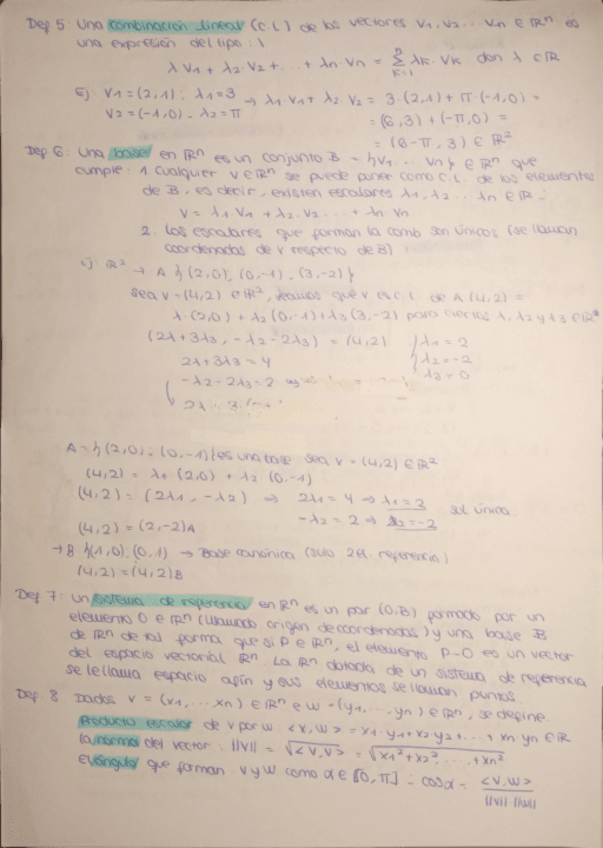 Def 5: Una combinación lineal (C.L) de los vectores V1, V2... Vn ∈ ℝⁿ es
una expresión del tipo:
λ V1 + λ2·V2 + ... + λn·Vn = Σ(K=1 → n) λK·VK don λ ∈ ℝ
Ej V1 = (2,1) ; λ1 = 3 → λ1·V1 + λ2·V2 = 3·(2,1) + π·(-1,0) =
V2 = (-1,0) ; λ2 = π = (6,3) + (-π,0) =
= (6-π, 3) ∈ ℝ²
Def 6: Una base en ℝⁿ es un conjunto B = {V1... Vn} ∈ ℝⁿ que
cumple: 1. Cualquier V ∈ ℝⁿ se puede poner como C.L. de los elementos
de B, es decir, existen escalares λ1, λ2... λn ∈ ℝ :
V = λ1·V1 + λ2·V2 ... + λn·Vn
2. Los escalares que forman la comb son únicos (se llaman
coordenadas de V respecto de B)
Ej: ℝ² → A {(2,0), (0,-1), (3,-2)}
Sea V = (4,2) ∈ ℝ², veamos que V es C.L de A (4,2) =
λ·(2,0) + λ2(0,-1) + λ3(3,-2) para ciertos λ, λ2 y λ3 ∈ ℝ
(2λ + 3λ3, -λ2 - 2λ3) = (4,2) { λ1 = 2
2λ + 3λ3 = 4 λ2 = -2
-λ2 - 2λ3 = 2 λ3 = 0
A = {(2,0); (0,-1)} es una base sea V = (4,2) ∈ ℝ²
(4,2) = λ1 (2,0) + λ2 (0,-1)
(4,2) = (2λ1, -λ2) ⇒ 2λ1 = 4 ⇒ λ1 = 2 sol única
-λ2 = 2 ⇒ λ2 = -2
(4,2) = (2,-2)A
→ B {(1,0), (0,1) → Base canónica (solo referencia)
(4,2) = (4,2)B
Def 7: un sistema de referencia en ℝⁿ es un par (O,B) formado por un
elemento O ∈ ℝⁿ (llamado origen de coordenadas) y una base B
de ℝⁿ de tal forma que si P ∈ ℝⁿ, el elemento P-O es un vector
del espacio vectorial ℝⁿ. La ℝⁿ dotada de un sistema de referencia
se le llama espacio afín y sus elementos se llaman puntos.
Def 8 Dados V = (x1, ... xn) ∈ ℝⁿ e W = (y1, ... yn) ∈ ℝⁿ, se define.
Producto escalar de V por W: <V,W> = x1·y1 + x2·y2 + ... + xn·yn ∈ ℝ
La norma del vector: ||V|| = √<V,V> = √x1² + x2² ... + xn²
El ángulo que forman V y W como α ∈ [0,π] = cosα = <V,W> / ||V||·||W||